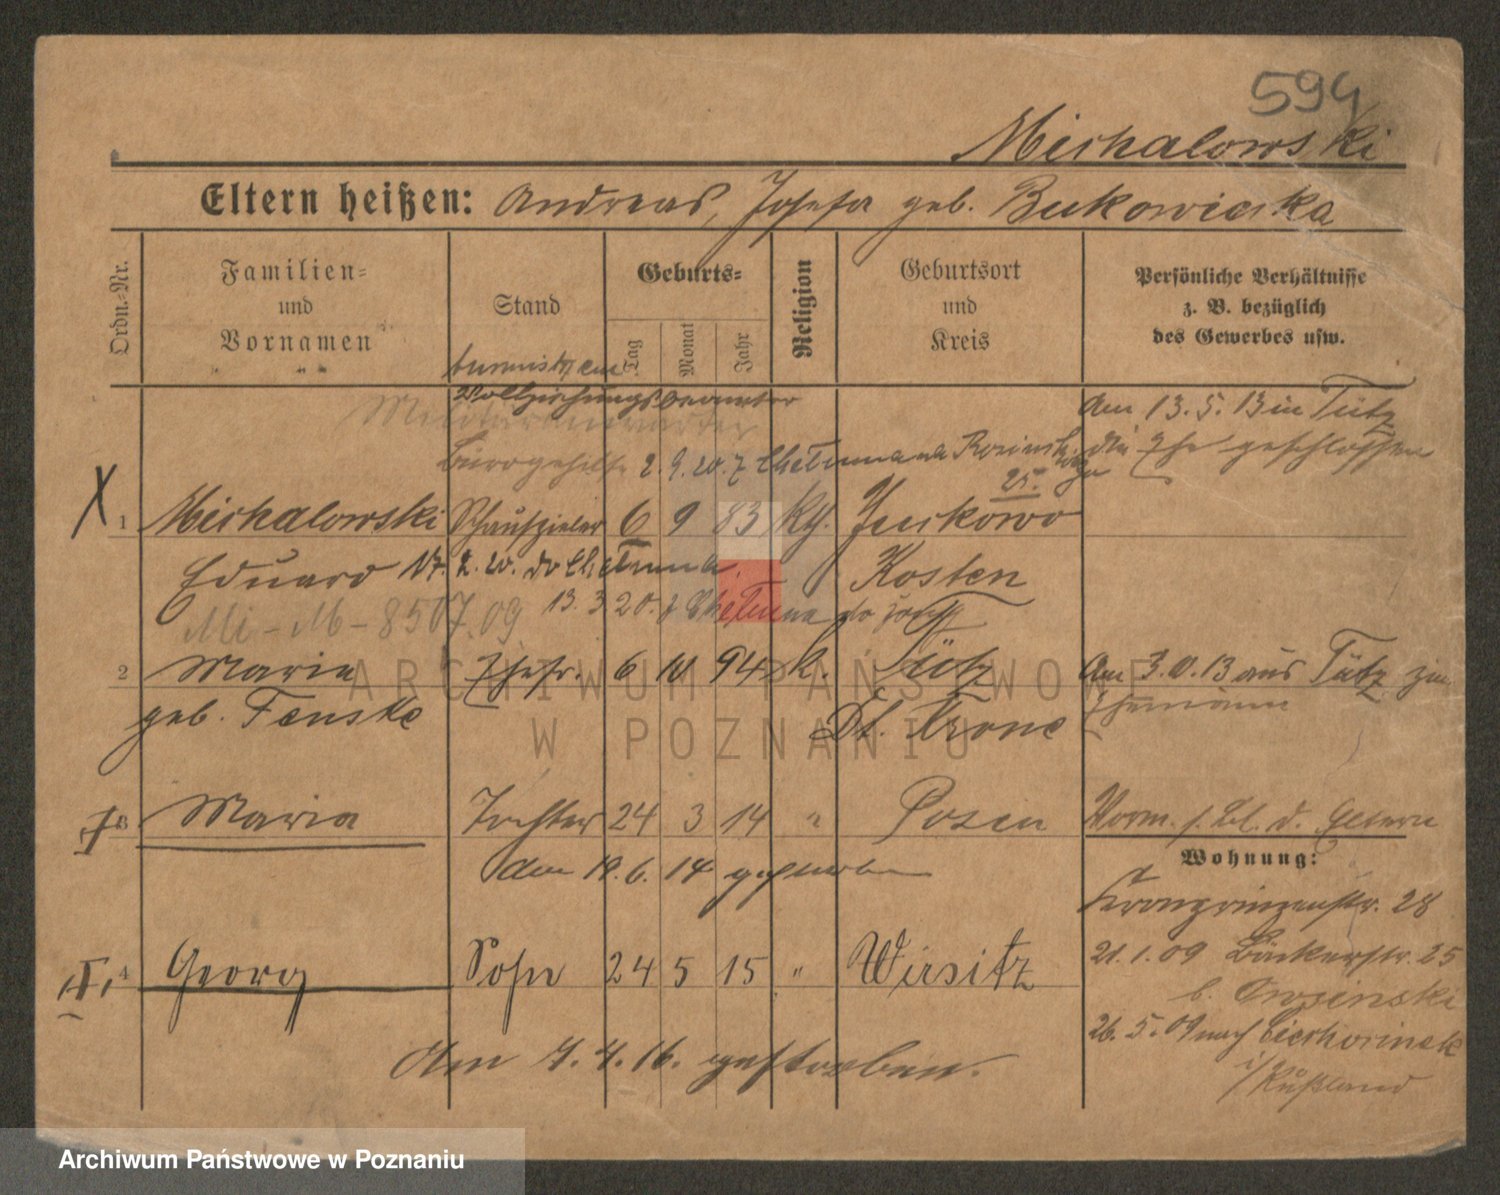 594
Michalowski
Eltern heißen: Andreas, Josefa geb. Bukowiecka
Ordn.-Nr.
Familien-
und
Vornamen
Stand
Geburts-
Tag
Monat
Jahr
Religion
Geburtsort
und
Kreis
Persönliche Verhältnisse
z. B. bezüglich
des Gewerbes usw.
Vollziehungsbeamter
Militäranwärter
Am 13.5.13 in Tütz
Bürogehilfe 2.9.20. z Chełmna
die Ehe geschlossen
25.
1 Michalowski Schauspieler 6 9 83 Kth. Jurkowo
Eduard 17. 2. 20. do Chełmna. Kosten
Mi-M-8507.09 13. 3 20. z Chełmna do
2 Maria Ehefr. 6 10 94 k. Tütz Am 3.6.13 aus Tütz zum
geb. Fenske Dt. Krone Ehemann
3 Maria Tochter 24 3 14 " Posen Vorm. s. Bl. d. Eltern
den 19. 6. 14 gestorben
Wohnung:
Kronprinzenstr. 28
4 Georg Sohn 24 5 15 " Wirsitz
21.1.09 Bäckerstr. 25
b. Owsinski
Am 7. 4. 16. gestorben.
26. 5. 09 nach Ciechocinek
i/Rußland
ARCHIWUM PAŃSTWOWE
W POZNANIU
Archiwum Państwowe w Poznaniu